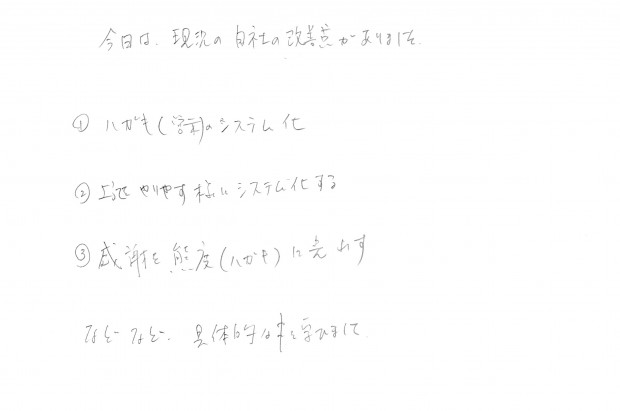 今日は、現況の自社の改善点がありました。
① ハガキ()のシステム化
② やりやす様にシステム化する
③ 感謝を態度(ハガキ)に表わす
などなど、具体的な事を学びました